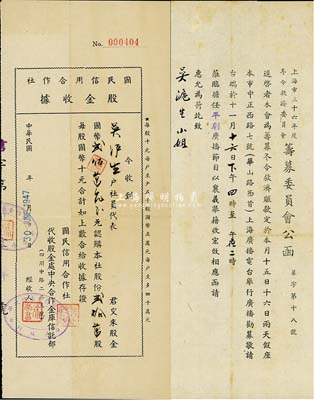 No. 000404
國民信用合作社
股金收據
今收到
吳滬生戶社員代表 君交來股金
國幣 元認購本社股份 股
每股國幣十元合計如上數合給收據存證
國民信用合作社
代收股金處中央合作金庫信託部
中華民國 年 月
經收人
1947
上海市三十六年度
冬令救濟委員會
籌募委員會公函
募字第十八號
逕啓者本會為籌募冬令救濟賑款定於本月十五日十六日兩天假座
本市中正西路七號(華山路西首)上海廣播電台舉行廣播勸募敬請
台端於十一月十六日下午四時至 二時
蒞臨擔任平劇廣播節目以襄義舉籍收宏效相應函請
惠允為荷此致
吳滬生小姐